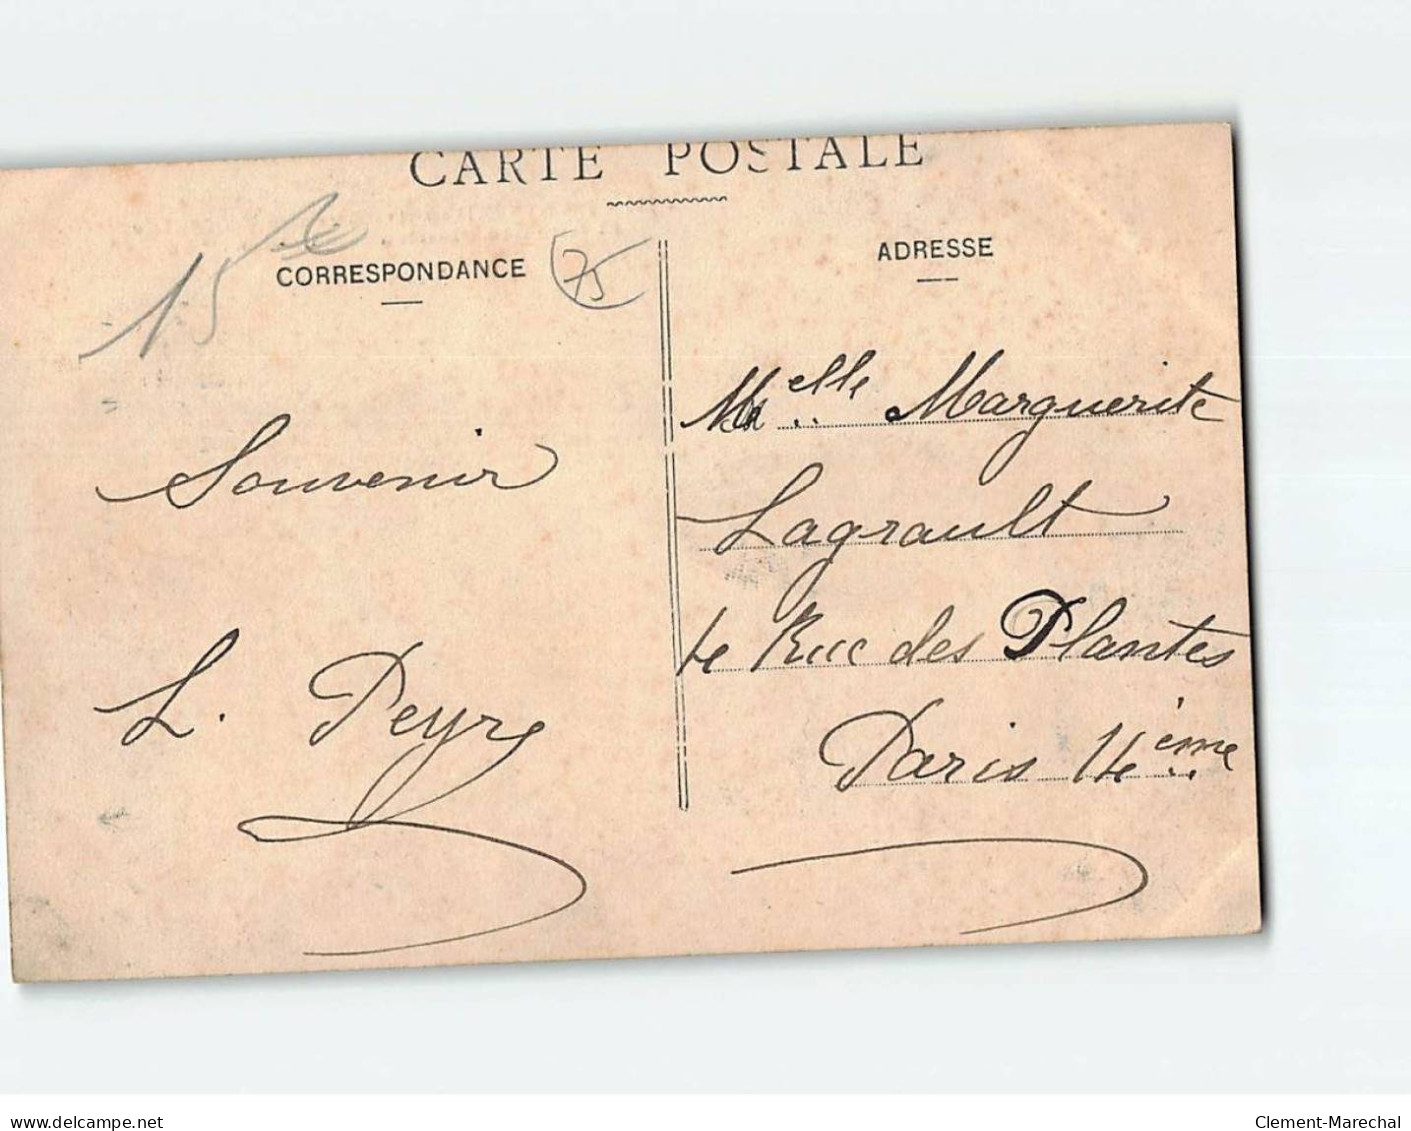 CARTE POSTALE
15
CORRESPONDANCE
75
Souvenir
L. Peyre
ADRESSE
Melle Marguerite
Lagrault
4 Rue des Plantes
Paris 14ème
delcampe.net
Clement-Marechal